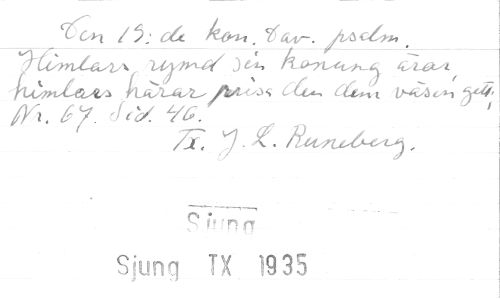 Den 19: de kon. Dav. psalm.
Himlars rymd sin konung ärar,
himlars härar prisa den dem väsen gett;
Nr. 67. Sid. 46.
Tx. J. L. Runeberg.
Sjung
Sjung TX 1935